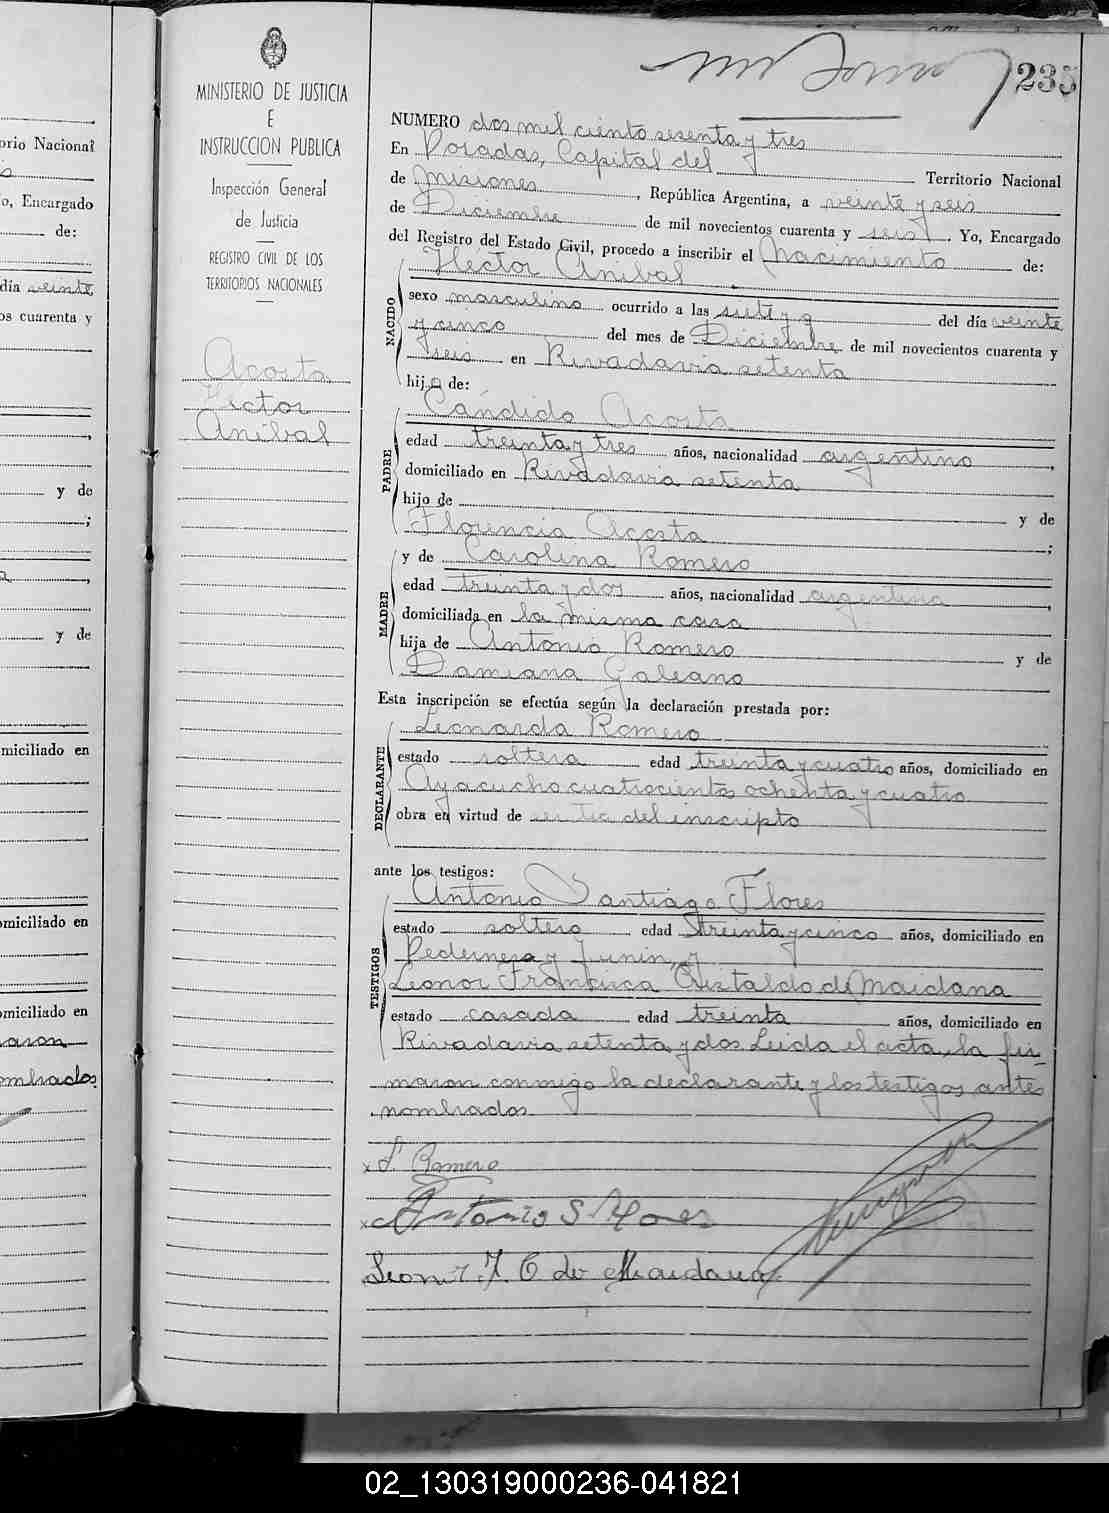 235
MINISTERIO DE JUSTICIA
E
INSTRUCCION PUBLICA
Inspección General
de Justicia
REGISTRO CIVIL DE LOS
TERRITORIOS NACIONALES
Acosta
Hector
Aníbal
NUMERO dos mil ciento sesenta y tres
En Posadas, Capital del Territorio Nacional
de Misiones, República Argentina, a veinte y seis
de Diciembre de mil novecientos cuarenta y seis. Yo, Encargado
del Registro del Estado Civil, procedo a inscribir el Nacimiento de:
NACIDO
Hector Anibal
sexo masculino ocurrido a las siete y a del día veinte
y cinco del mes de Diciembre de mil novecientos cuarenta y
seis en Rivadavia setenta
hijo de:
PADRE
Cándido Acosta
edad treinta y tres años, nacionalidad argentino,
domiciliado en Rivadavia setenta
hijo de y de
Florencia Acosta;
MADRE
y de Carolina Romero
edad treinta y dos años, nacionalidad argentina,
domiciliada en la misma casa
hija de Antonio Romero y de
Damiana Galeano
Esta inscripción se efectúa según la declaración prestada por:
DECLARANTE
Leonarda Romero
estado soltera edad treinta y cuatro años, domiciliado en
Ayacucho cuatrocientos ochenta y cuatro
obra en virtud de ser tia del inscripto
ante los testigos:
TESTIGOS
Antonio Santiago Flores
estado soltero edad treinta y cinco años, domiciliado en
Pedernera y Junin, y
Leonor Francisca Cristaldo de Maidana
estado casada edad treinta años, domiciliado en
Rivadavia setenta y dos Leida el acta, la fir
maron conmigo la declarante y los testigos antes
nombrados
x L. Romero
x Antonio S. Flores
Leonor F. C de Maidana
orio Nacional
o, Encargado
de:
día veinte
os cuarenta y
y de
y de
miciliado en
omiciliado en
omiciliado en
maron
ombrados
02_130319000236-041821